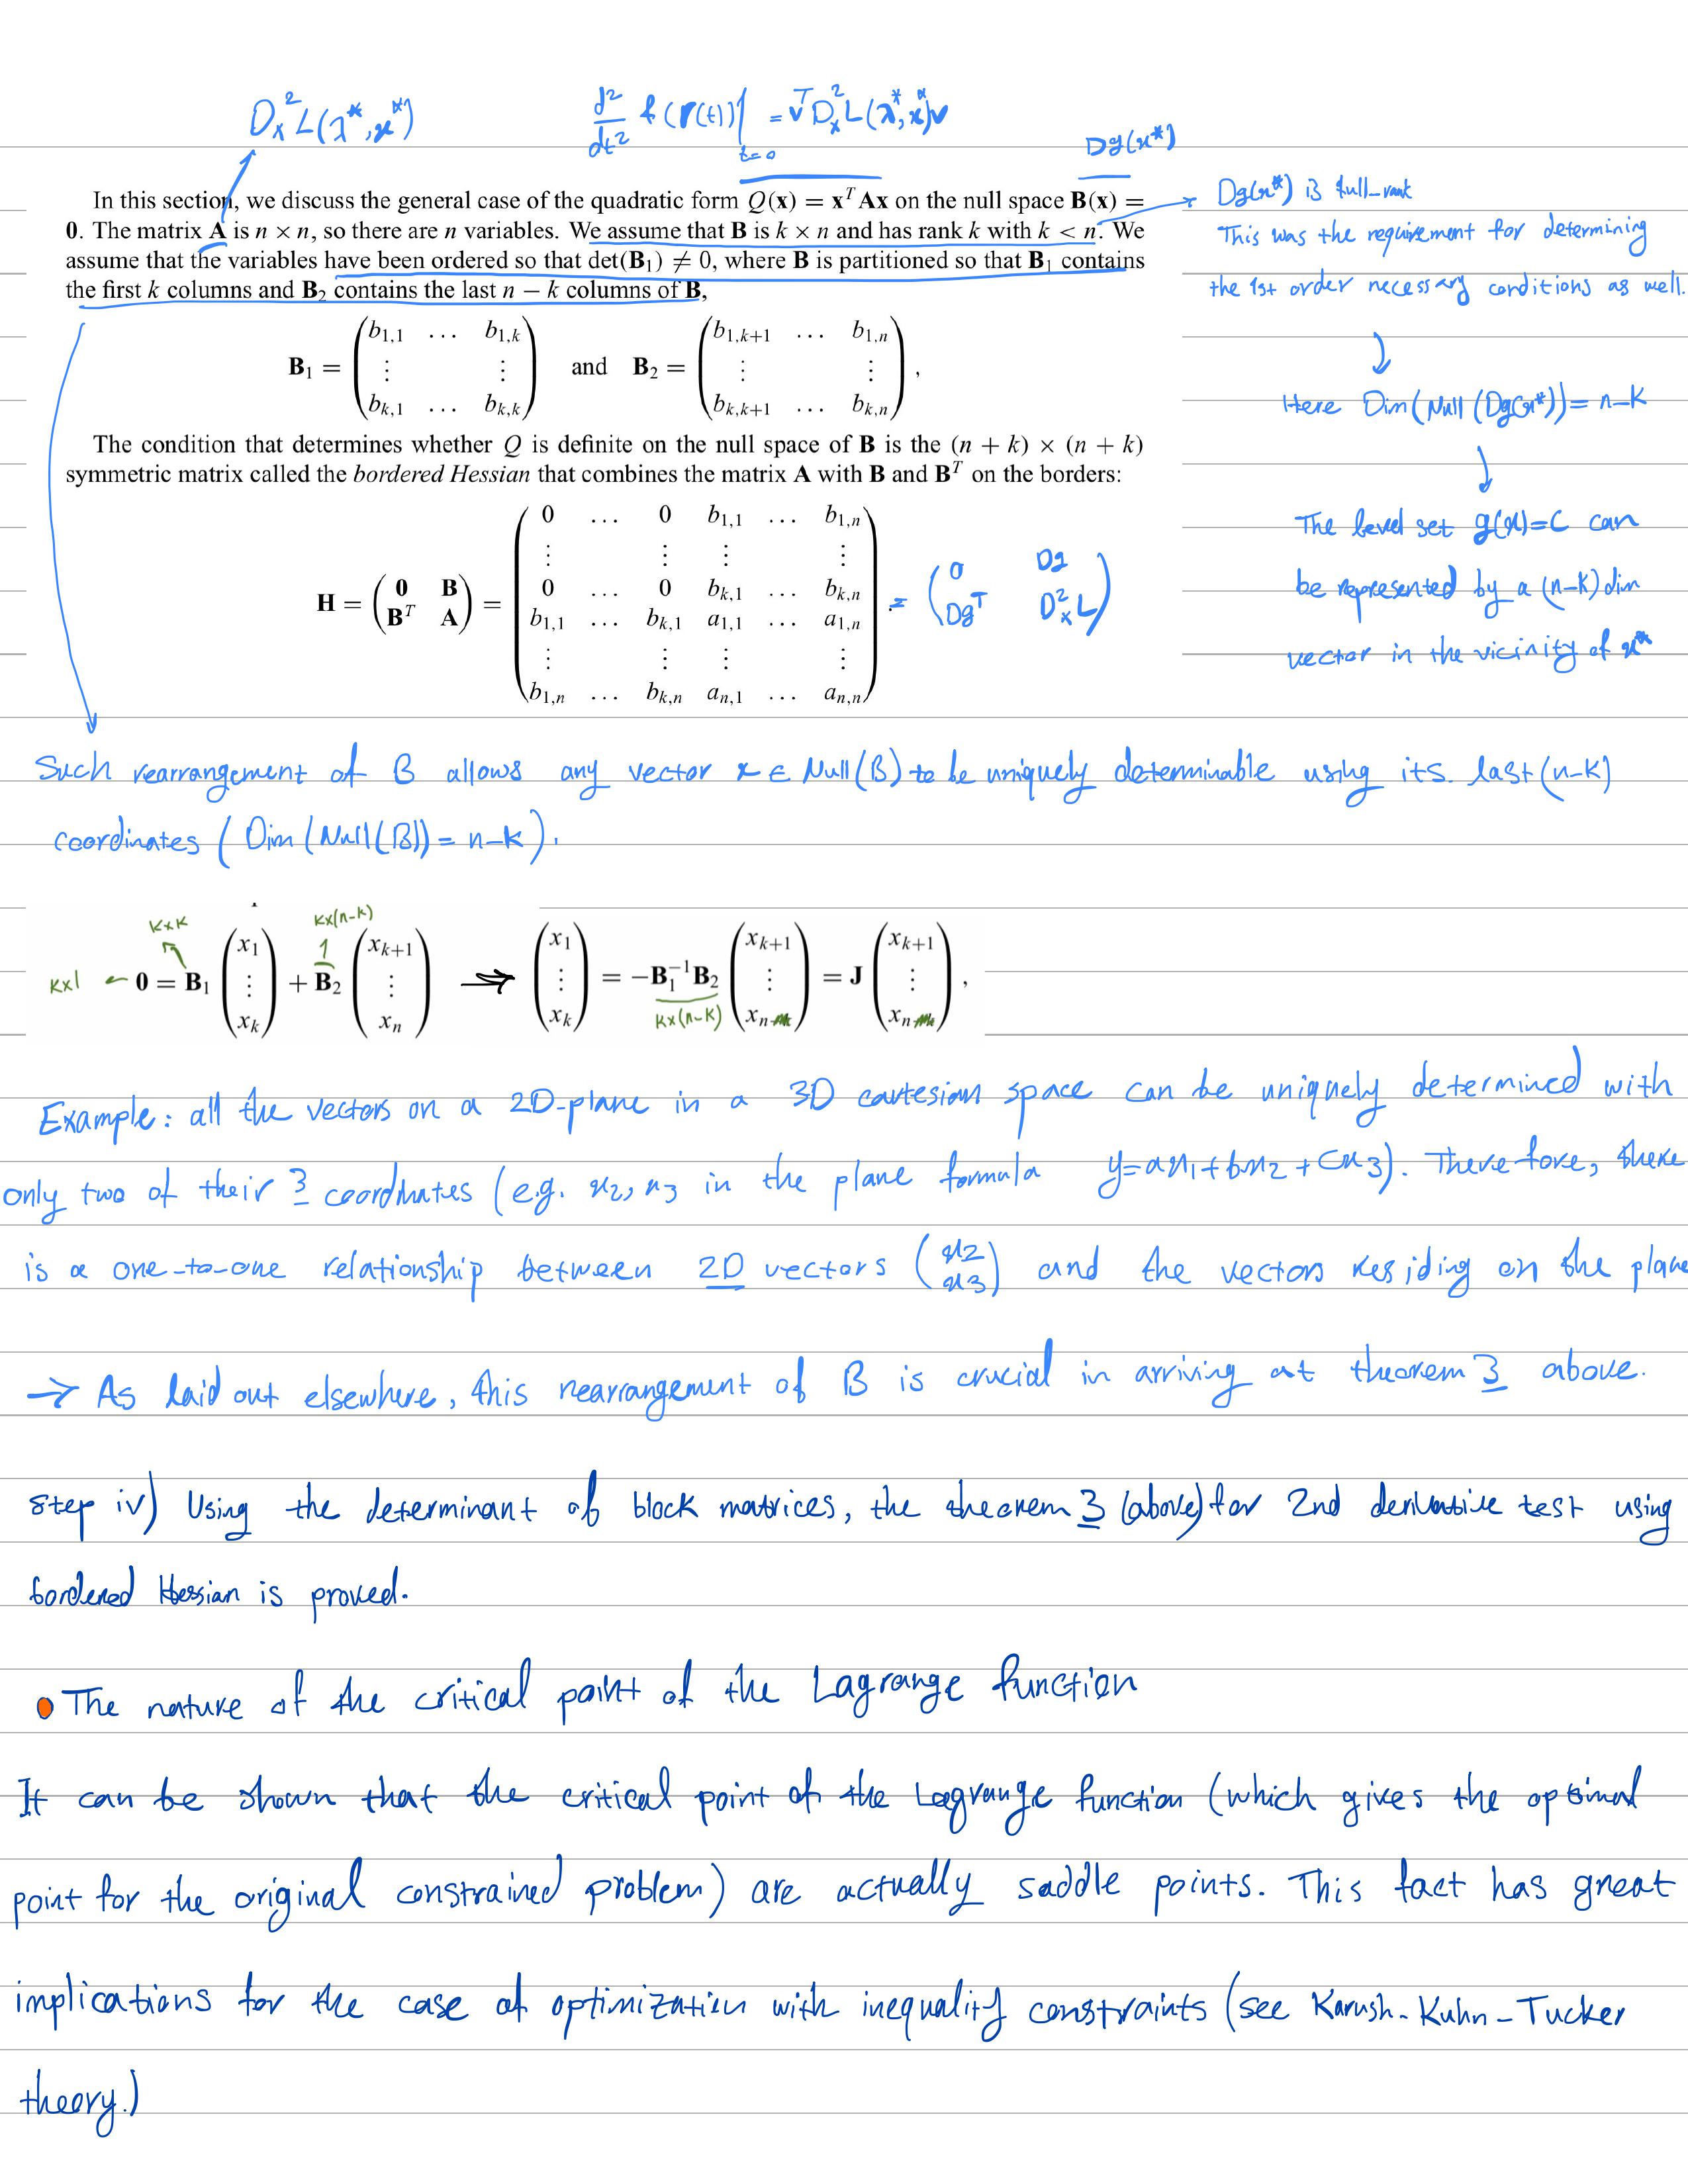 D²ₓL(λ*,x*)
d²/dt² f(r(t))|t=0 = vᵀD²ₓL(λ*,x*)v
Dg(x*)
In this section, we discuss the general case of the quadratic form Q(x) = xᵀAx on the null space B(x) =
0. The matrix A is n × n, so there are n variables. We assume that B is k × n and has rank k with k < n. We
assume that the variables have been ordered so that det(B₁) ≠ 0, where B is partitioned so that B₁ contains
the first k columns and B₂ contains the last n − k columns of B,
Dg(x*) is full-rank
This was the requirement for determining
the 1st order necessary conditions as well.
Here Dim(Null(Dg(x*))) = n-k
The level set g(x)=c can
be represented by a (n-k) dim
vector in the vicinity of x*
B₁ = ( b1,1 … b1,k
⋮ ⋮
bk,1 … bk,k ) and B₂ = ( b1,k+1 … b1,n
⋮ ⋮
bk,k+1 … bk,n ) ,
The condition that determines whether Q is definite on the null space of B is the (n + k) × (n + k)
symmetric matrix called the bordered Hessian that combines the matrix A with B and Bᵀ on the borders:
H = ( 0 B
Bᵀ A ) =
( 0 … 0 b1,1 … b1,n
⋮ ⋮ ⋮ ⋮
0 … 0 bk,1 … bk,n
b1,1 … bk,1 a1,1 … a1,n
⋮ ⋮ ⋮ ⋮
b1,n … bk,n an,1 … an,n ) .
= ( 0 Dg
Dgᵀ D²ₓL )
Such rearrangement of B allows any vector x ∈ Null(B) to be uniquely determinable using its. last (n-k)
coordinates ( Dim (Null(B)) = n-k ).
kxk
kx(n-k)
kx1 ← 0 = B₁ ( x₁ ⋮ xₖ ) + B₂ ( xₖ₊₁ ⋮ xₙ ) → ( x₁ ⋮ xₖ ) = −B₁⁻¹B₂ ( xₖ₊₁ ⋮ xₙ ) = J ( xₖ₊₁ ⋮ xₙ ) ,
kx(n-k)
Example: all the vectors on a 2D-plane in a 3D cartesian space can be uniquely determined with
only two of their 3 coordinates (e.g. x₂, x₃ in the plane formula y=ax₁+bx₂+cx₃). Therefore, there
is a one-to-one relationship between 2D vectors (x₂ x₃) and the vectors residing on the plane
→ As laid out elsewhere, this rearrangement of B is crucial in arriving at theorem 3 above.
step iv) Using the determinant of block matrices, the theorem 3 (above) for 2nd derivative test using
bordered Hessian is proved.
• The nature of the critical point of the Lagrange function
It can be shown that the critical point of the Lagrange function (which gives the optimal
point for the original constrained problem) are actually saddle points. This fact has great
implications for the case of optimization with inequality constraints (see Karush-Kuhn-Tucker
theory.)